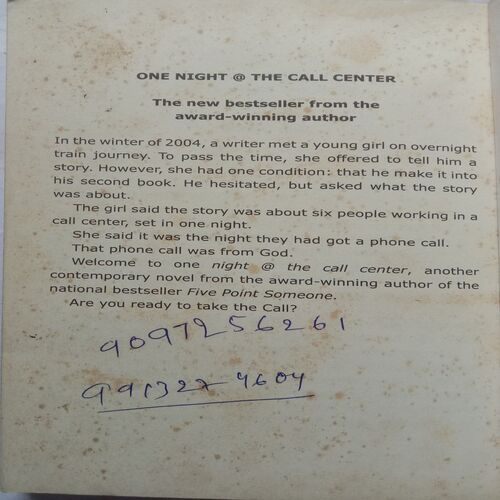 ONE NIGHT @ THE CALL CENTER
The new bestseller from the
award-winning author
In the winter of 2004, a writer met a young girl on overnight
train journey. To pass the time, she offered to tell him a
story. However, she had one condition: that he make it into
his second book. He hesitated, but asked what the story
was about.
The girl said the story was about six people working in a
call center, set in one night.
She said it was the night they had got a phone call.
That phone call was from God.
Welcome to one night @ the call center, another
contemporary novel from the award-winning author of the
national bestseller Five Point Someone.
Are you ready to take the Call?
9097256261